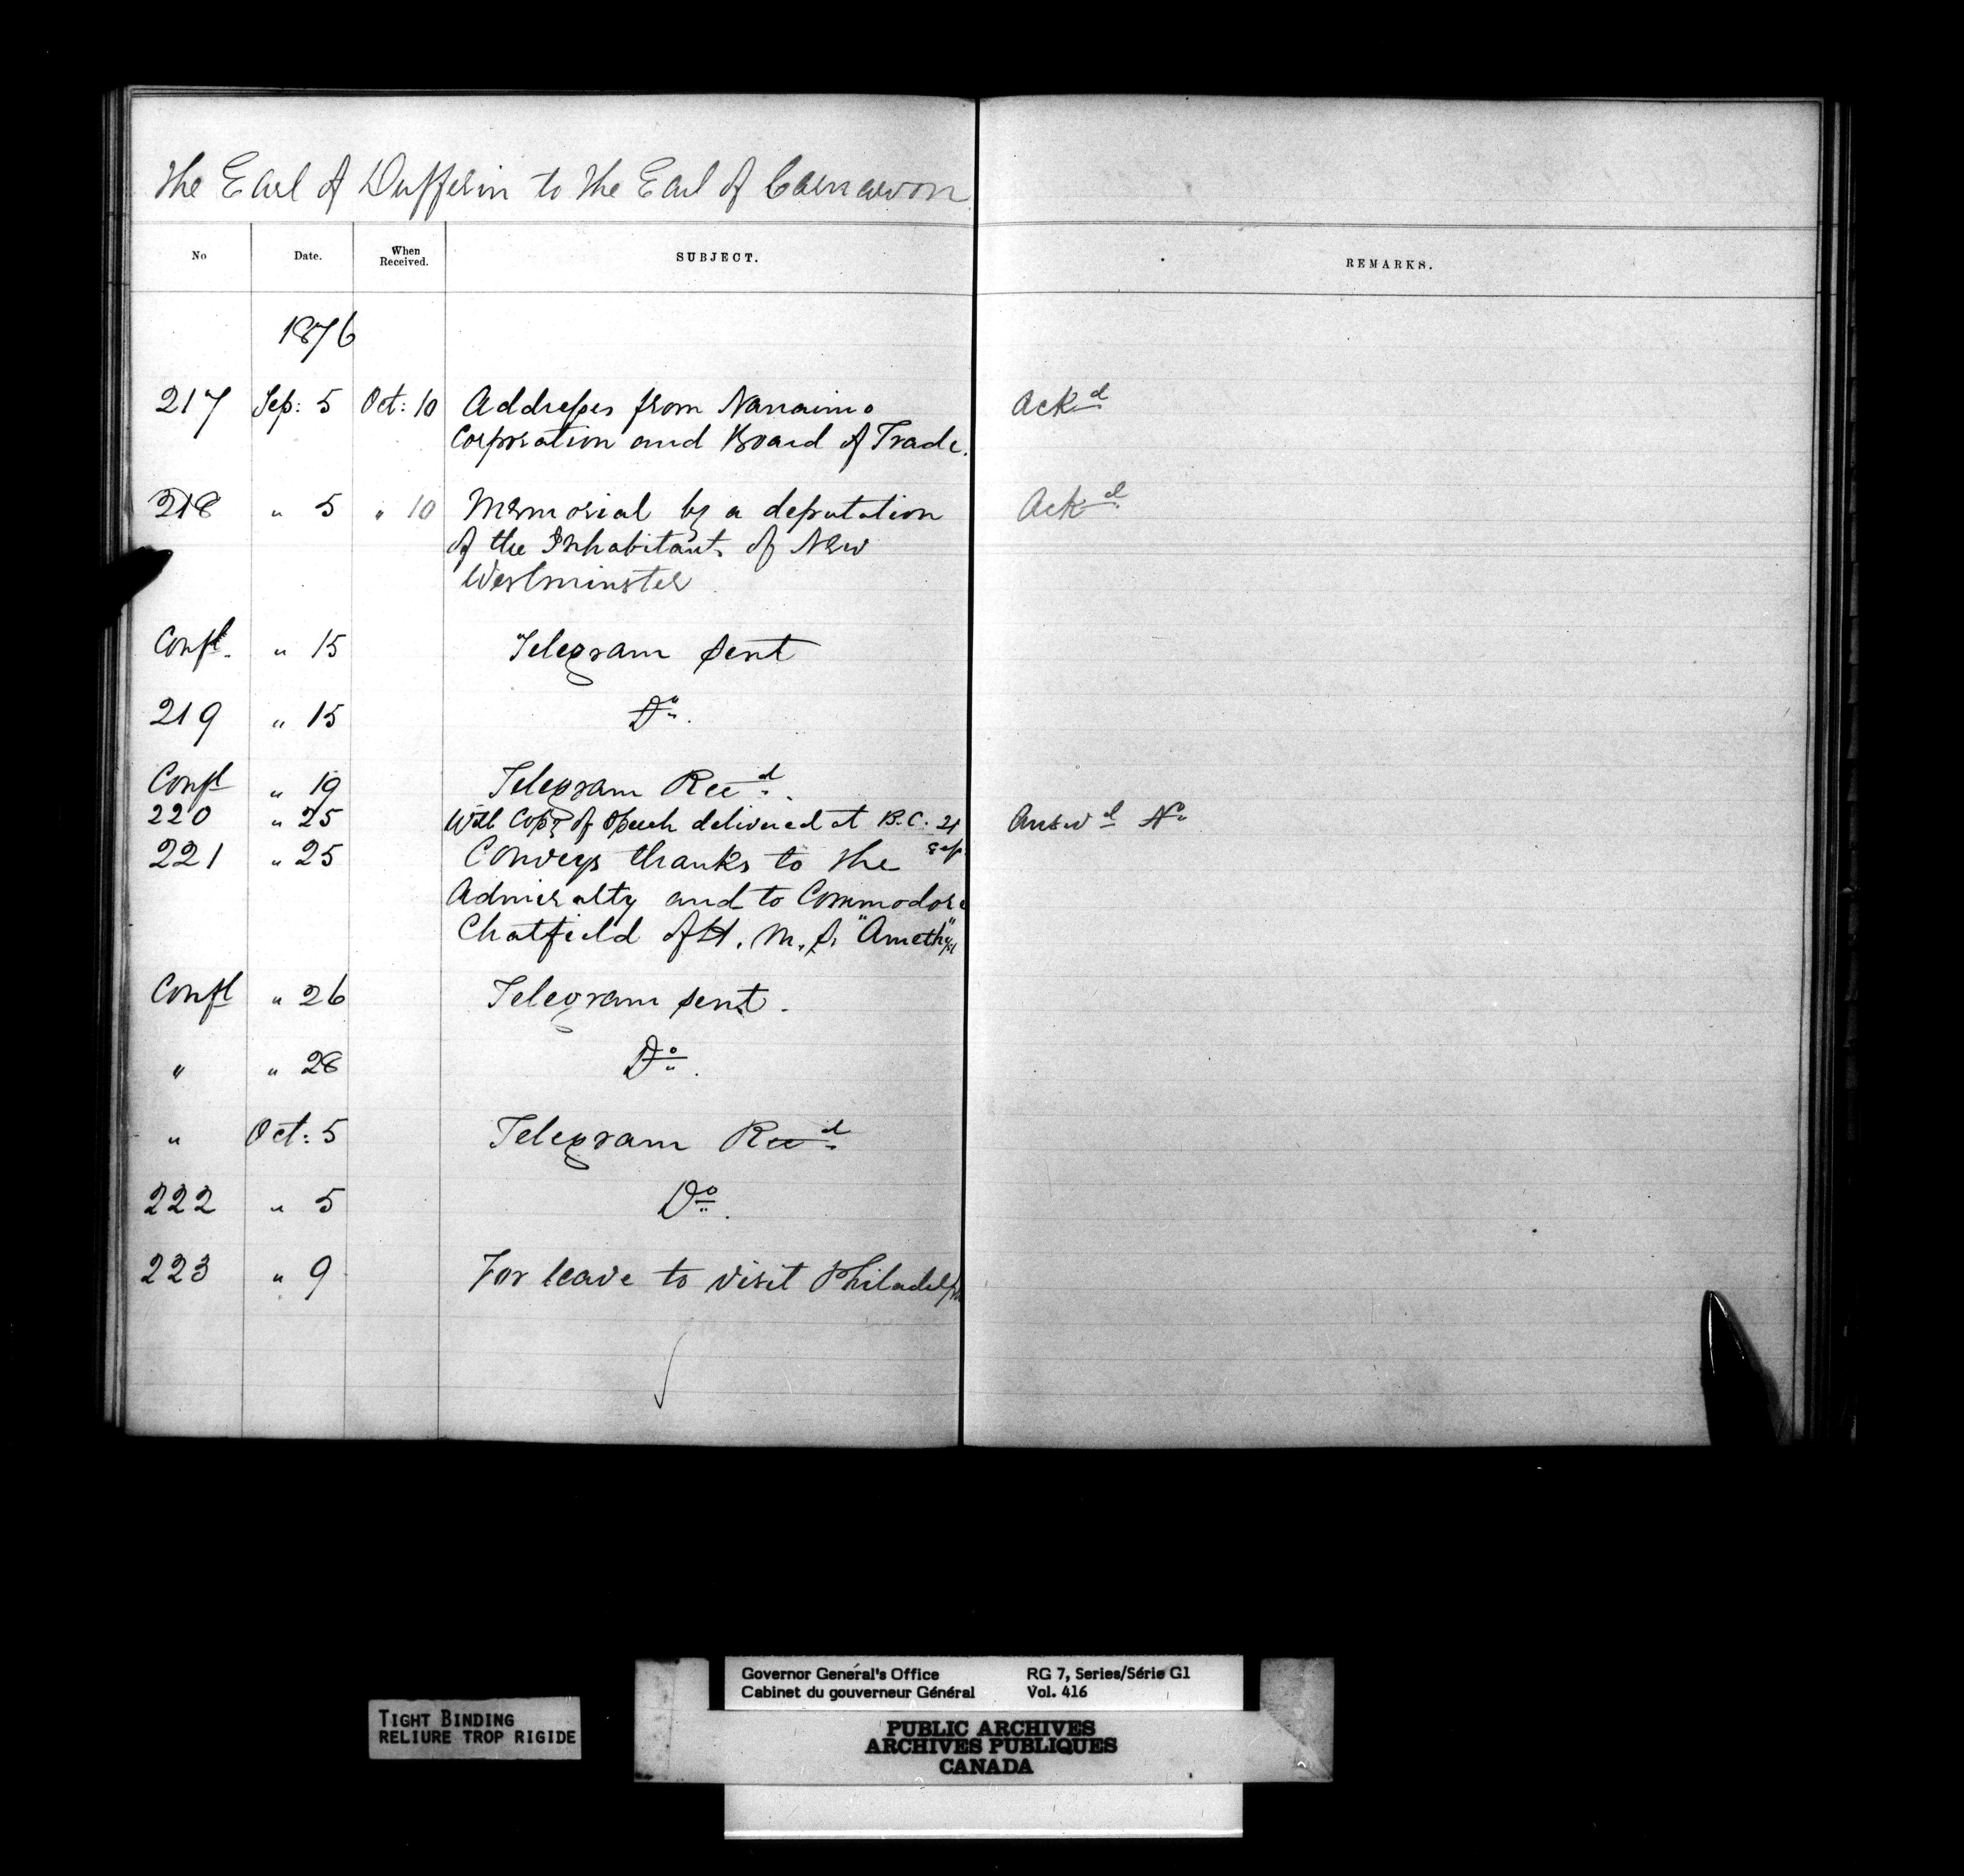 The Earl of Dufferin to the Earl of Carnarvon
No Date. When Received. SUBJECT. REMARKS.
1876
217 Sep: 5 Oct: 10 Addresses from Nanaimo Ackd
Corporation and Board of Trade.
218 " 5 " 10 Memorial by a deputation Ackd
of the Inhabitants of New
Westminster
Confl. " 15 Telegram sent
219 " 15 Do.
Confl " 19 Telegram Recd.
220 " 25 With Copy of Speech delivered at B.C. 21 Sep Answd No
221 " 25 Conveys thanks to the
Admiralty and to Commodore
Chatfield of H. M. S. "Amethyst"
Confl " 26 Telegram sent.
" " 28 Do.
" Oct: 5 Telegram Recd
222 " 5 Do.
223 " 9 For leave to visit Philadelph
TIGHT BINDING
RELIURE TROP RIGIDE
Governor General's Office RG 7, Series/Série G1
Cabinet du gouverneur Général Vol. 416
PUBLIC ARCHIVES
ARCHIVES PUBLIQUES
CANADA